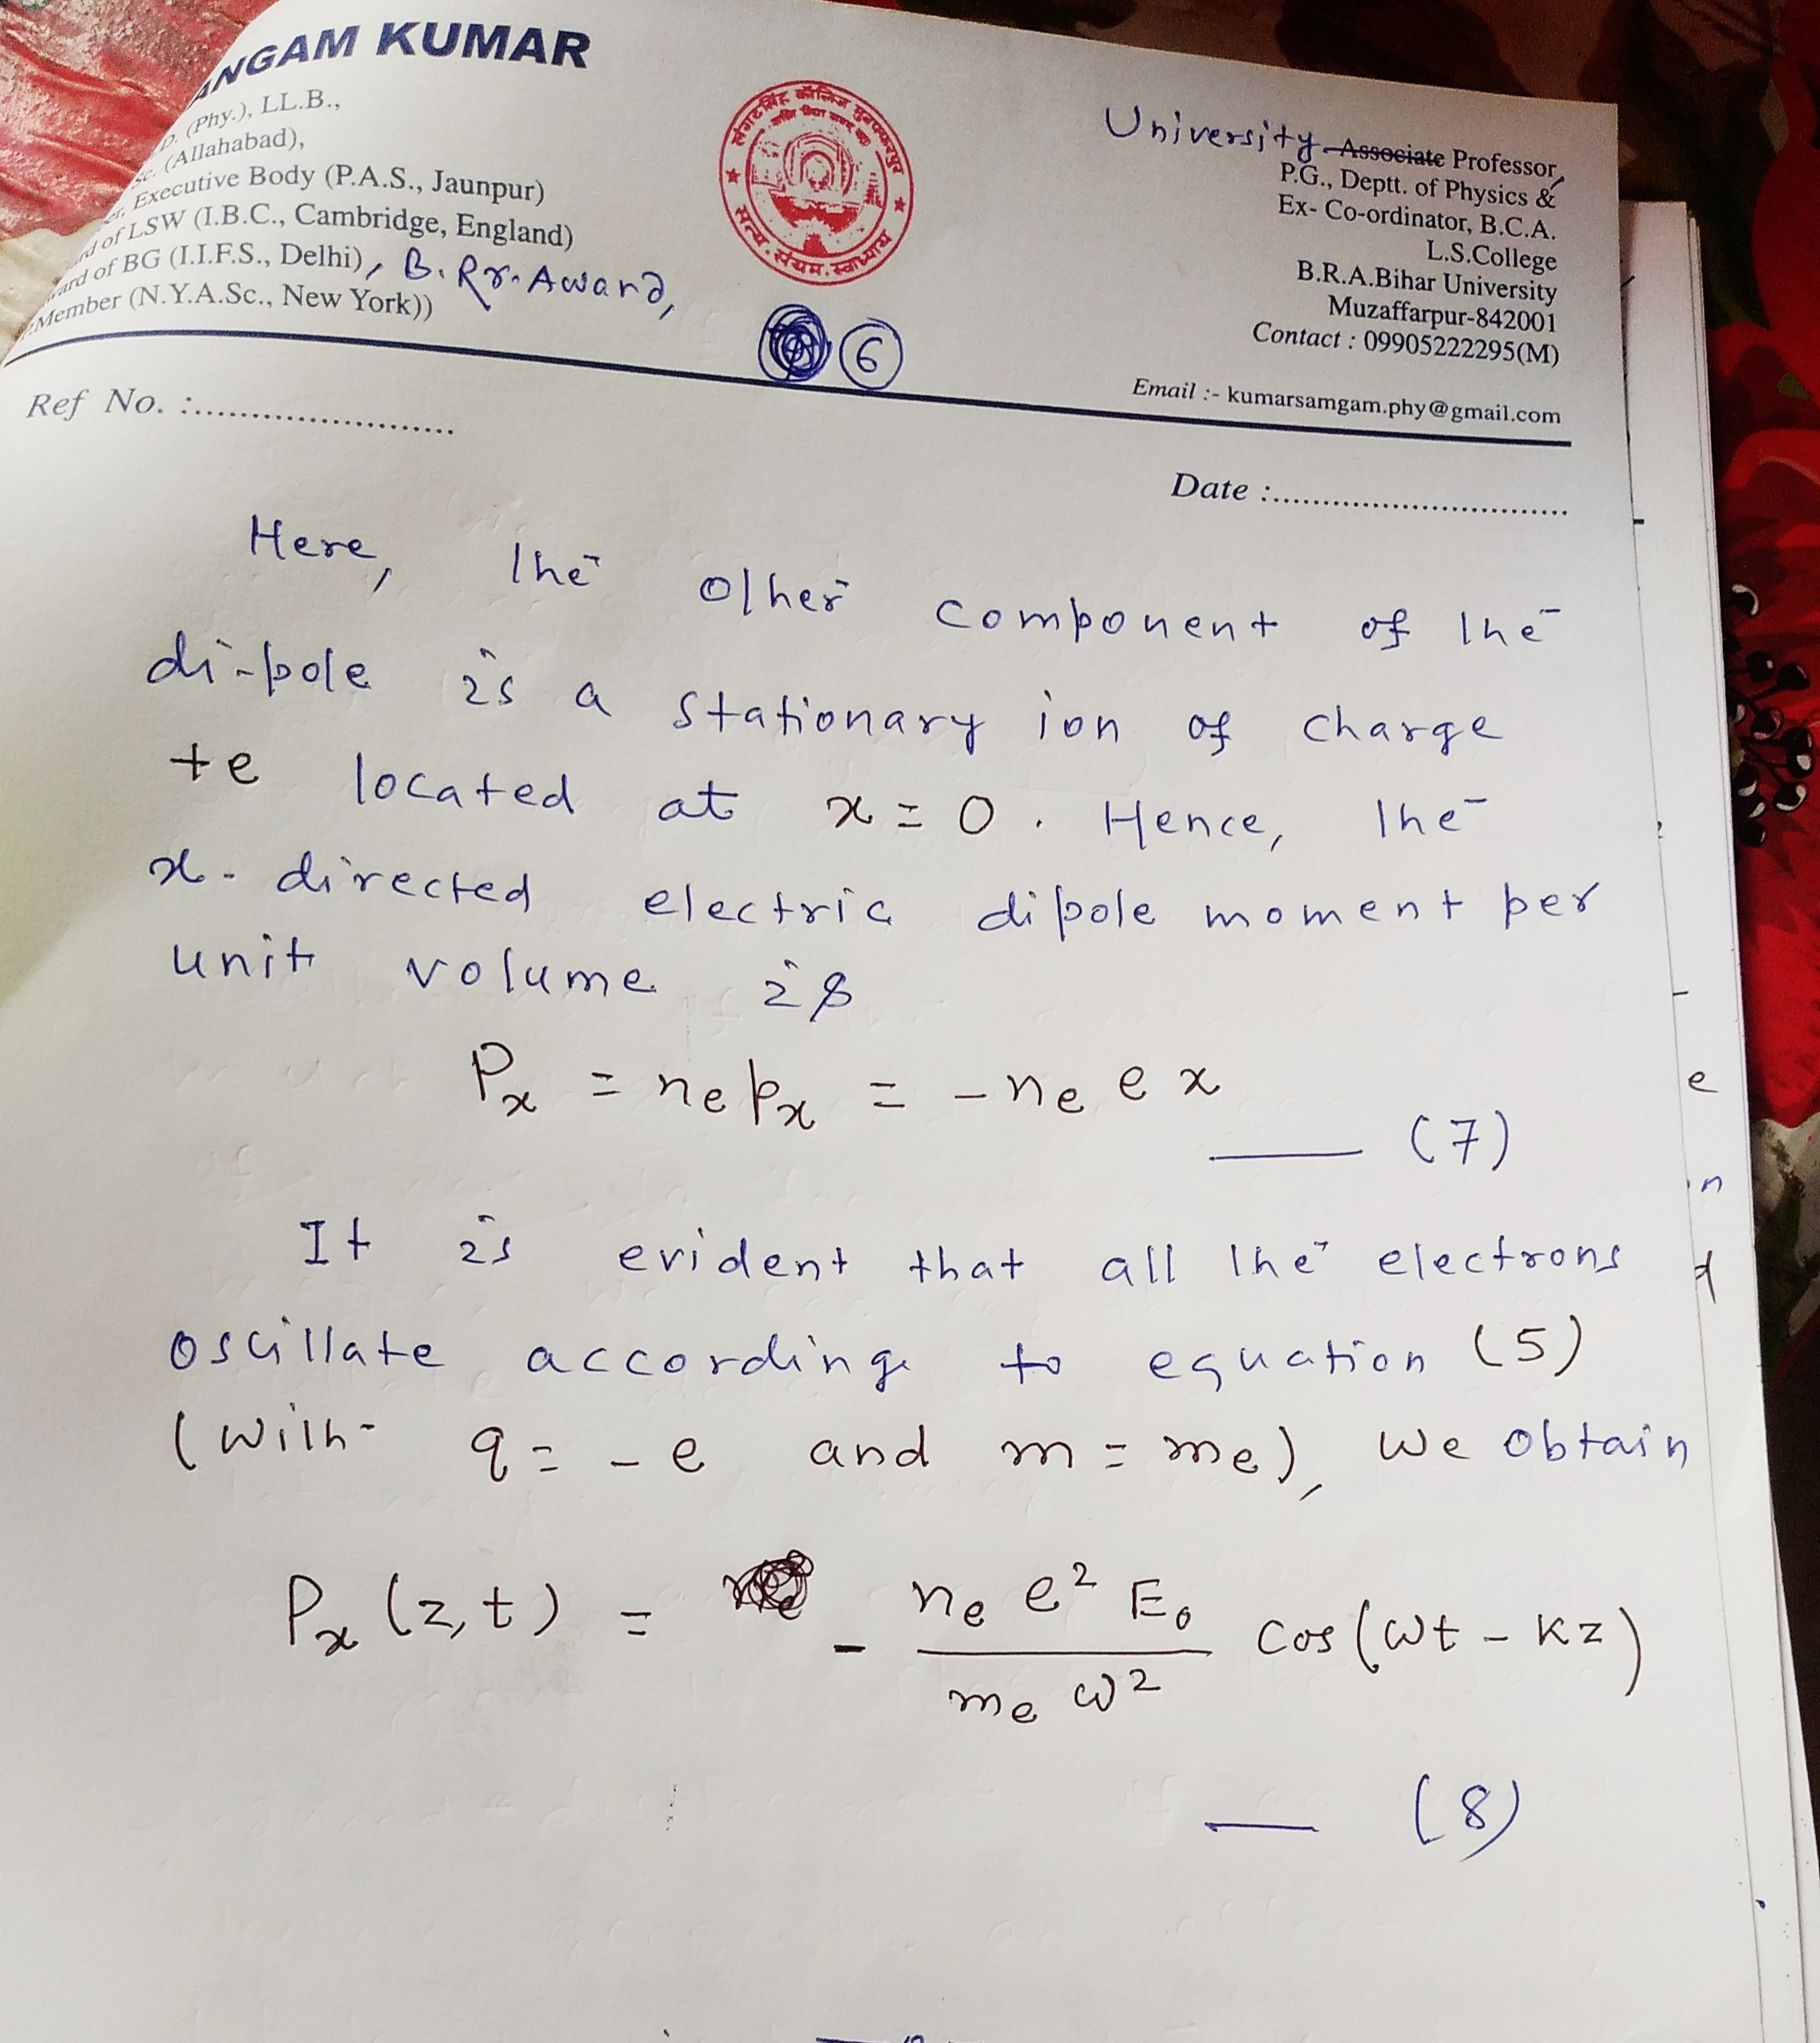 ANGAM KUMAR
D. (Phy.), LL.B.,
Sc. (Allahabad),
Executive Body (P.A.S., Jaunpur)
of LSW (I.B.C., Cambridge, England)
of BG (I.I.F.S., Delhi), B. Rr. Award,
Member (N.Y.A.Sc., New York))
लंगटसिंह कॉलेज मुजफ्फरपुर
सत्य. संयम. स्वाध्याय
6
University Associate Professor,
P.G., Deptt. of Physics &
Ex- Co-ordinator, B.C.A.
L.S.College
B.R.A.Bihar University
Muzaffarpur-842001
Contact : 09905222295(M)
Email :- kumarsamgam.phy@gmail.com
Ref No. :........................
Date :..............................
Here, the other component of the
di-pole is a stationary ion of charge
+e located at x = 0. Hence, the
x-directed electric dipole moment per
unit volume is
Pₓ = nₑ pₓ = -nₑ e x
— (7)
It is evident that all the electrons
oscillate according to equation (5)
(with q = -e and m = mₑ), we obtain
Pₓ (z, t) = - nₑ e² E₀ / mₑ ω² cos(ωt - kz)
— (8)
e
n
d